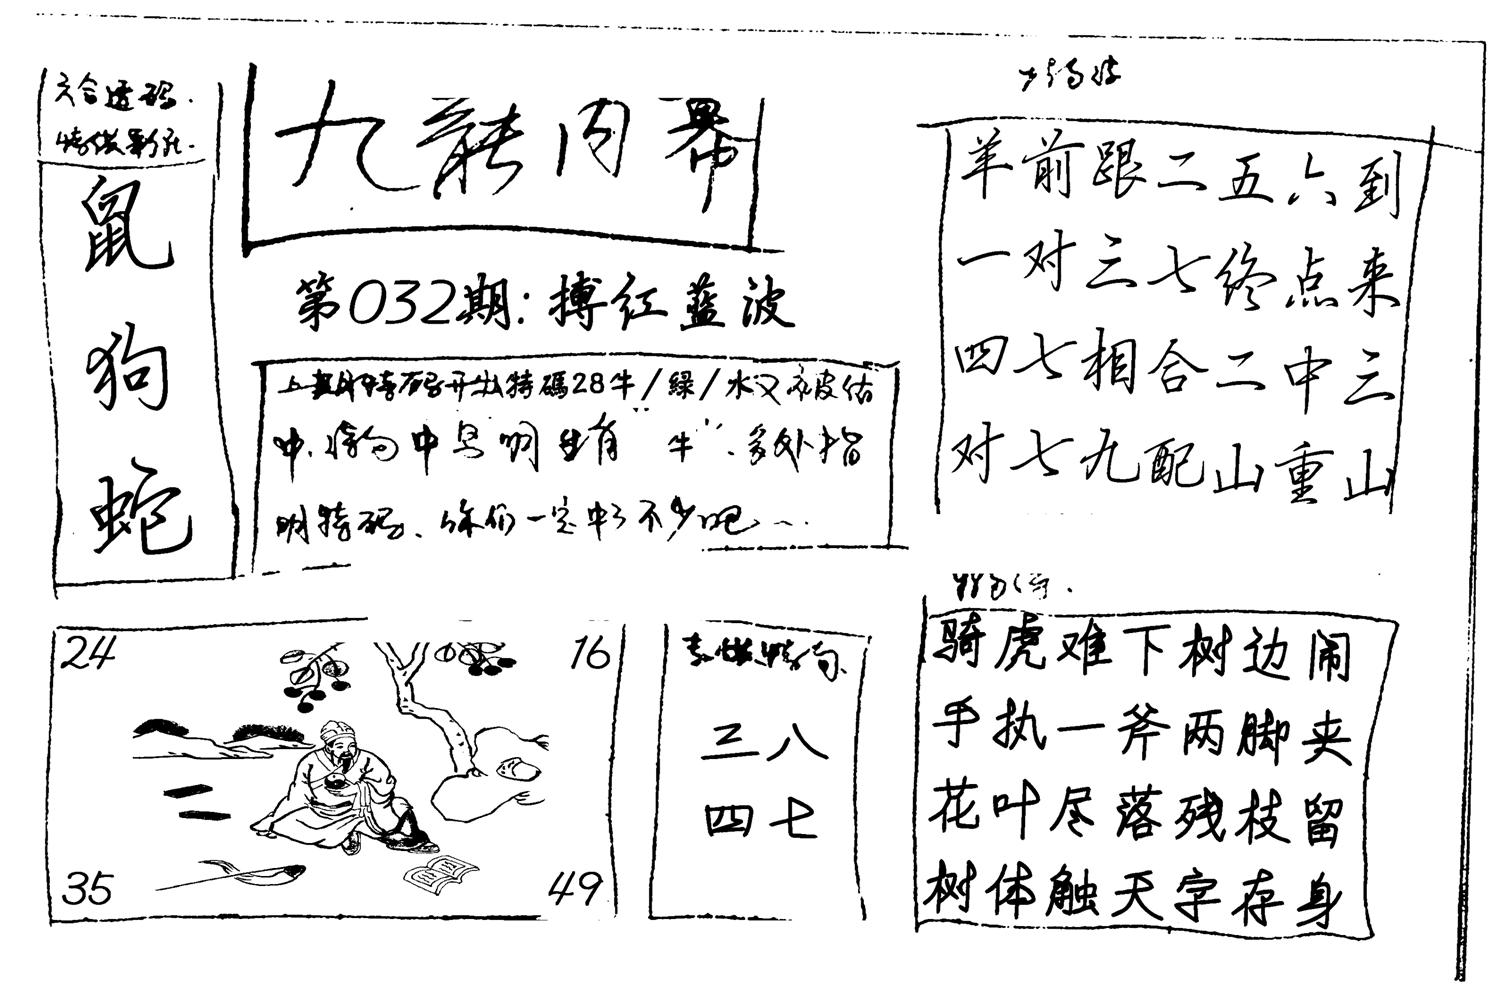 六合透码.
鼠
狗
蛇
九龍内幕
第032期:搏红蓝波
上期特码开出特碼28牛/緑/水又被估
中.特句中早明生肖"牛".多处指
明特码、你们一定中了不少吧…
羊前跟二五六到
一对三七终点来
四七相合二中三
对七九配山重山
24
16
35
49
三八
四七
骑虎难下树边闹
手执一斧两脚夹
花叶尽落残枝留
树体触天字存身